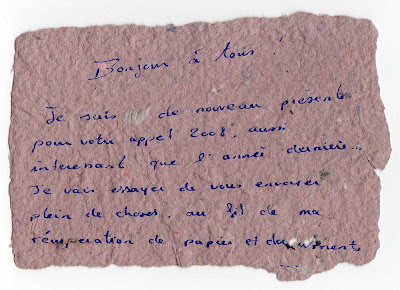 Bonjour à tous !
Je suis de nouveau présente
pour votre appel 2008, aussi
interessant que l'année dernière...
Je vais essayer de vous envoyer
plein de choses, au fil de ma
récuperation de papier et documents
...